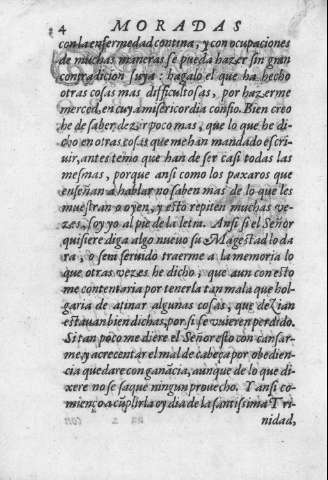 4 MORADAS
con la enfermedad contina, y con ocupaciones
de muchas maneras se pueda hazer sin gran
contradicion suya: hagalo el que ha hecho
otras cosas mas difficultosas, por hazerme
merced, en cuya misericordia confio. Bien creo
he de saber dezir poco mas, que lo que he di-
cho en otras cosas que me han mandado escri-
uir, antes temo que han de ser casi todas las
mesmas, porque ansi como los paxaros que
enseñan a hablar no saben mas de lo que les
muestran o oyen, y esto repiten muchas ve-
zes, soy yo al pie de la letra. Ansi si el Señor
quisiere diga algo nueuo su Magestad lo da
ra, o sera seruido traerme a la memoria lo
que otras vezes he dicho, que aun con esto
me contentaria por tenerla tan mala que hol-
garia de atinar algunas cosas, que dezian
estauan bien dichas, por si se vuieren perdido.
Si tan poco me diere el Señor esto con cansar-
me, y acrecentar el mal de cabeça por obedien-
cia quedare con ganācia, aunque de lo que di-
xere no se saque ningun prouecho. Y ansi co-
mienço a cūplirla oy dia de la santissima Tri-
nidad,